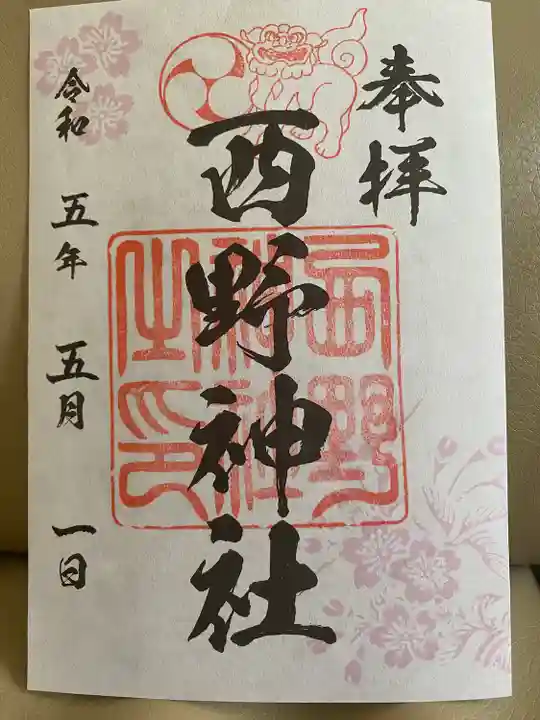 奉拝
西野神社
西野
神社
之印
令和五年五月一日